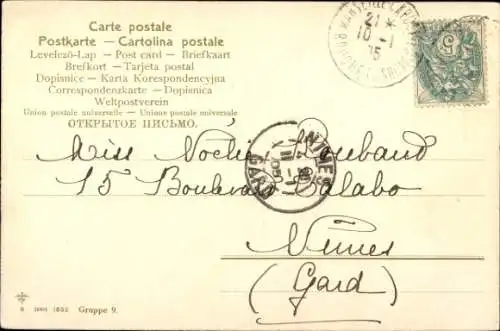 Carte postale
Postkarte — Cartolina postale
Levelező-Lap — Post card — Briefkaart
Brefkort — Tarjeta postal
Dopisnice — Karta Korespondencyjna
Correspondenzkarte — Dopisnica
Weltpostverein
Union postale universelle — Unione postale universale
ОТКРЫТОЕ ПИСЬМО.
21
10 - 1
05
5
NIMES
GARD
Miss Noélie
15 Boulevard Talabo
Nimes
(Gard)
Gruppe 9.